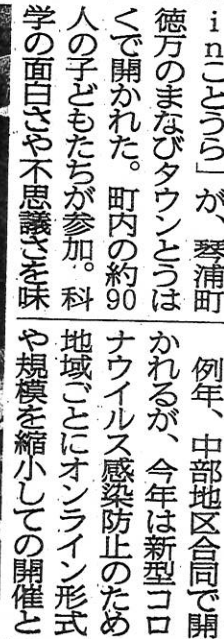 ｉｎことうら」が、琴浦町
徳万のまなびタウンとうは
くで開かれた。町内の約90
人の子どもたちが参加。科
学の面白さや不思議さを味
例年、中部地区合同で開
かれるが、今年は新型コロ
ナウイルス感染防止のため
地域ごとにオンライン形式
や規模を縮小しての開催と